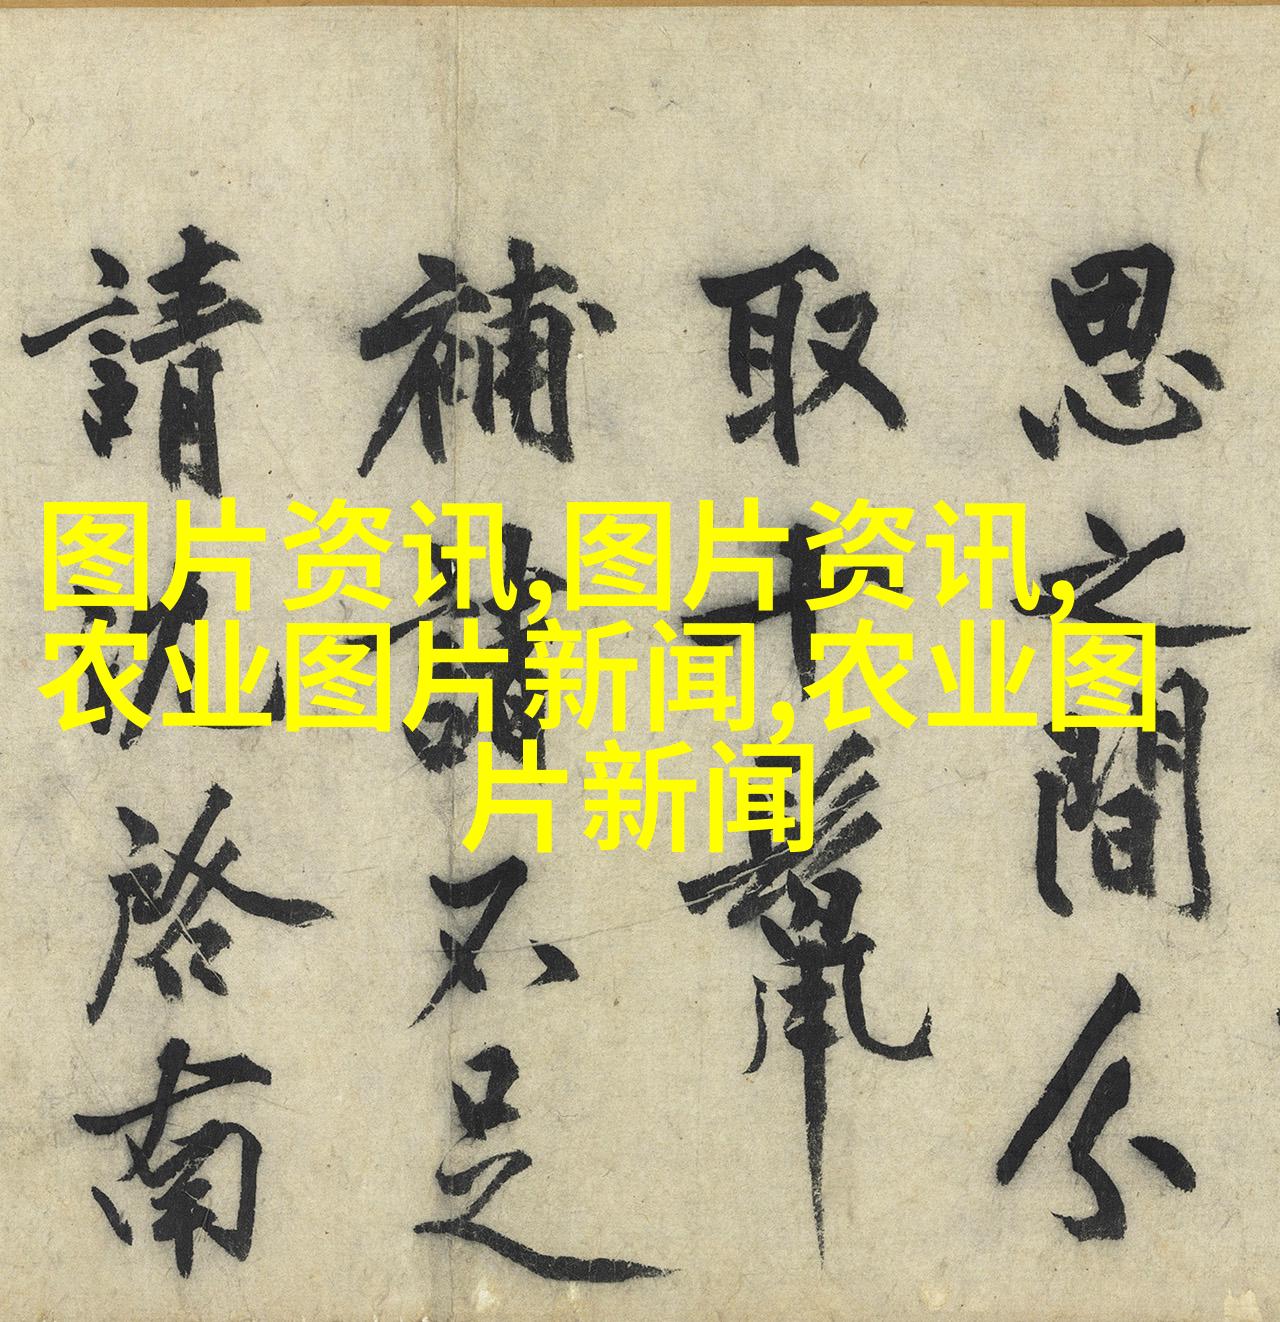 思之間分
取十鬣
補諸不足
請沈啓南
图片资讯,图片资讯,
农业图片新闻,农业图
片新闻